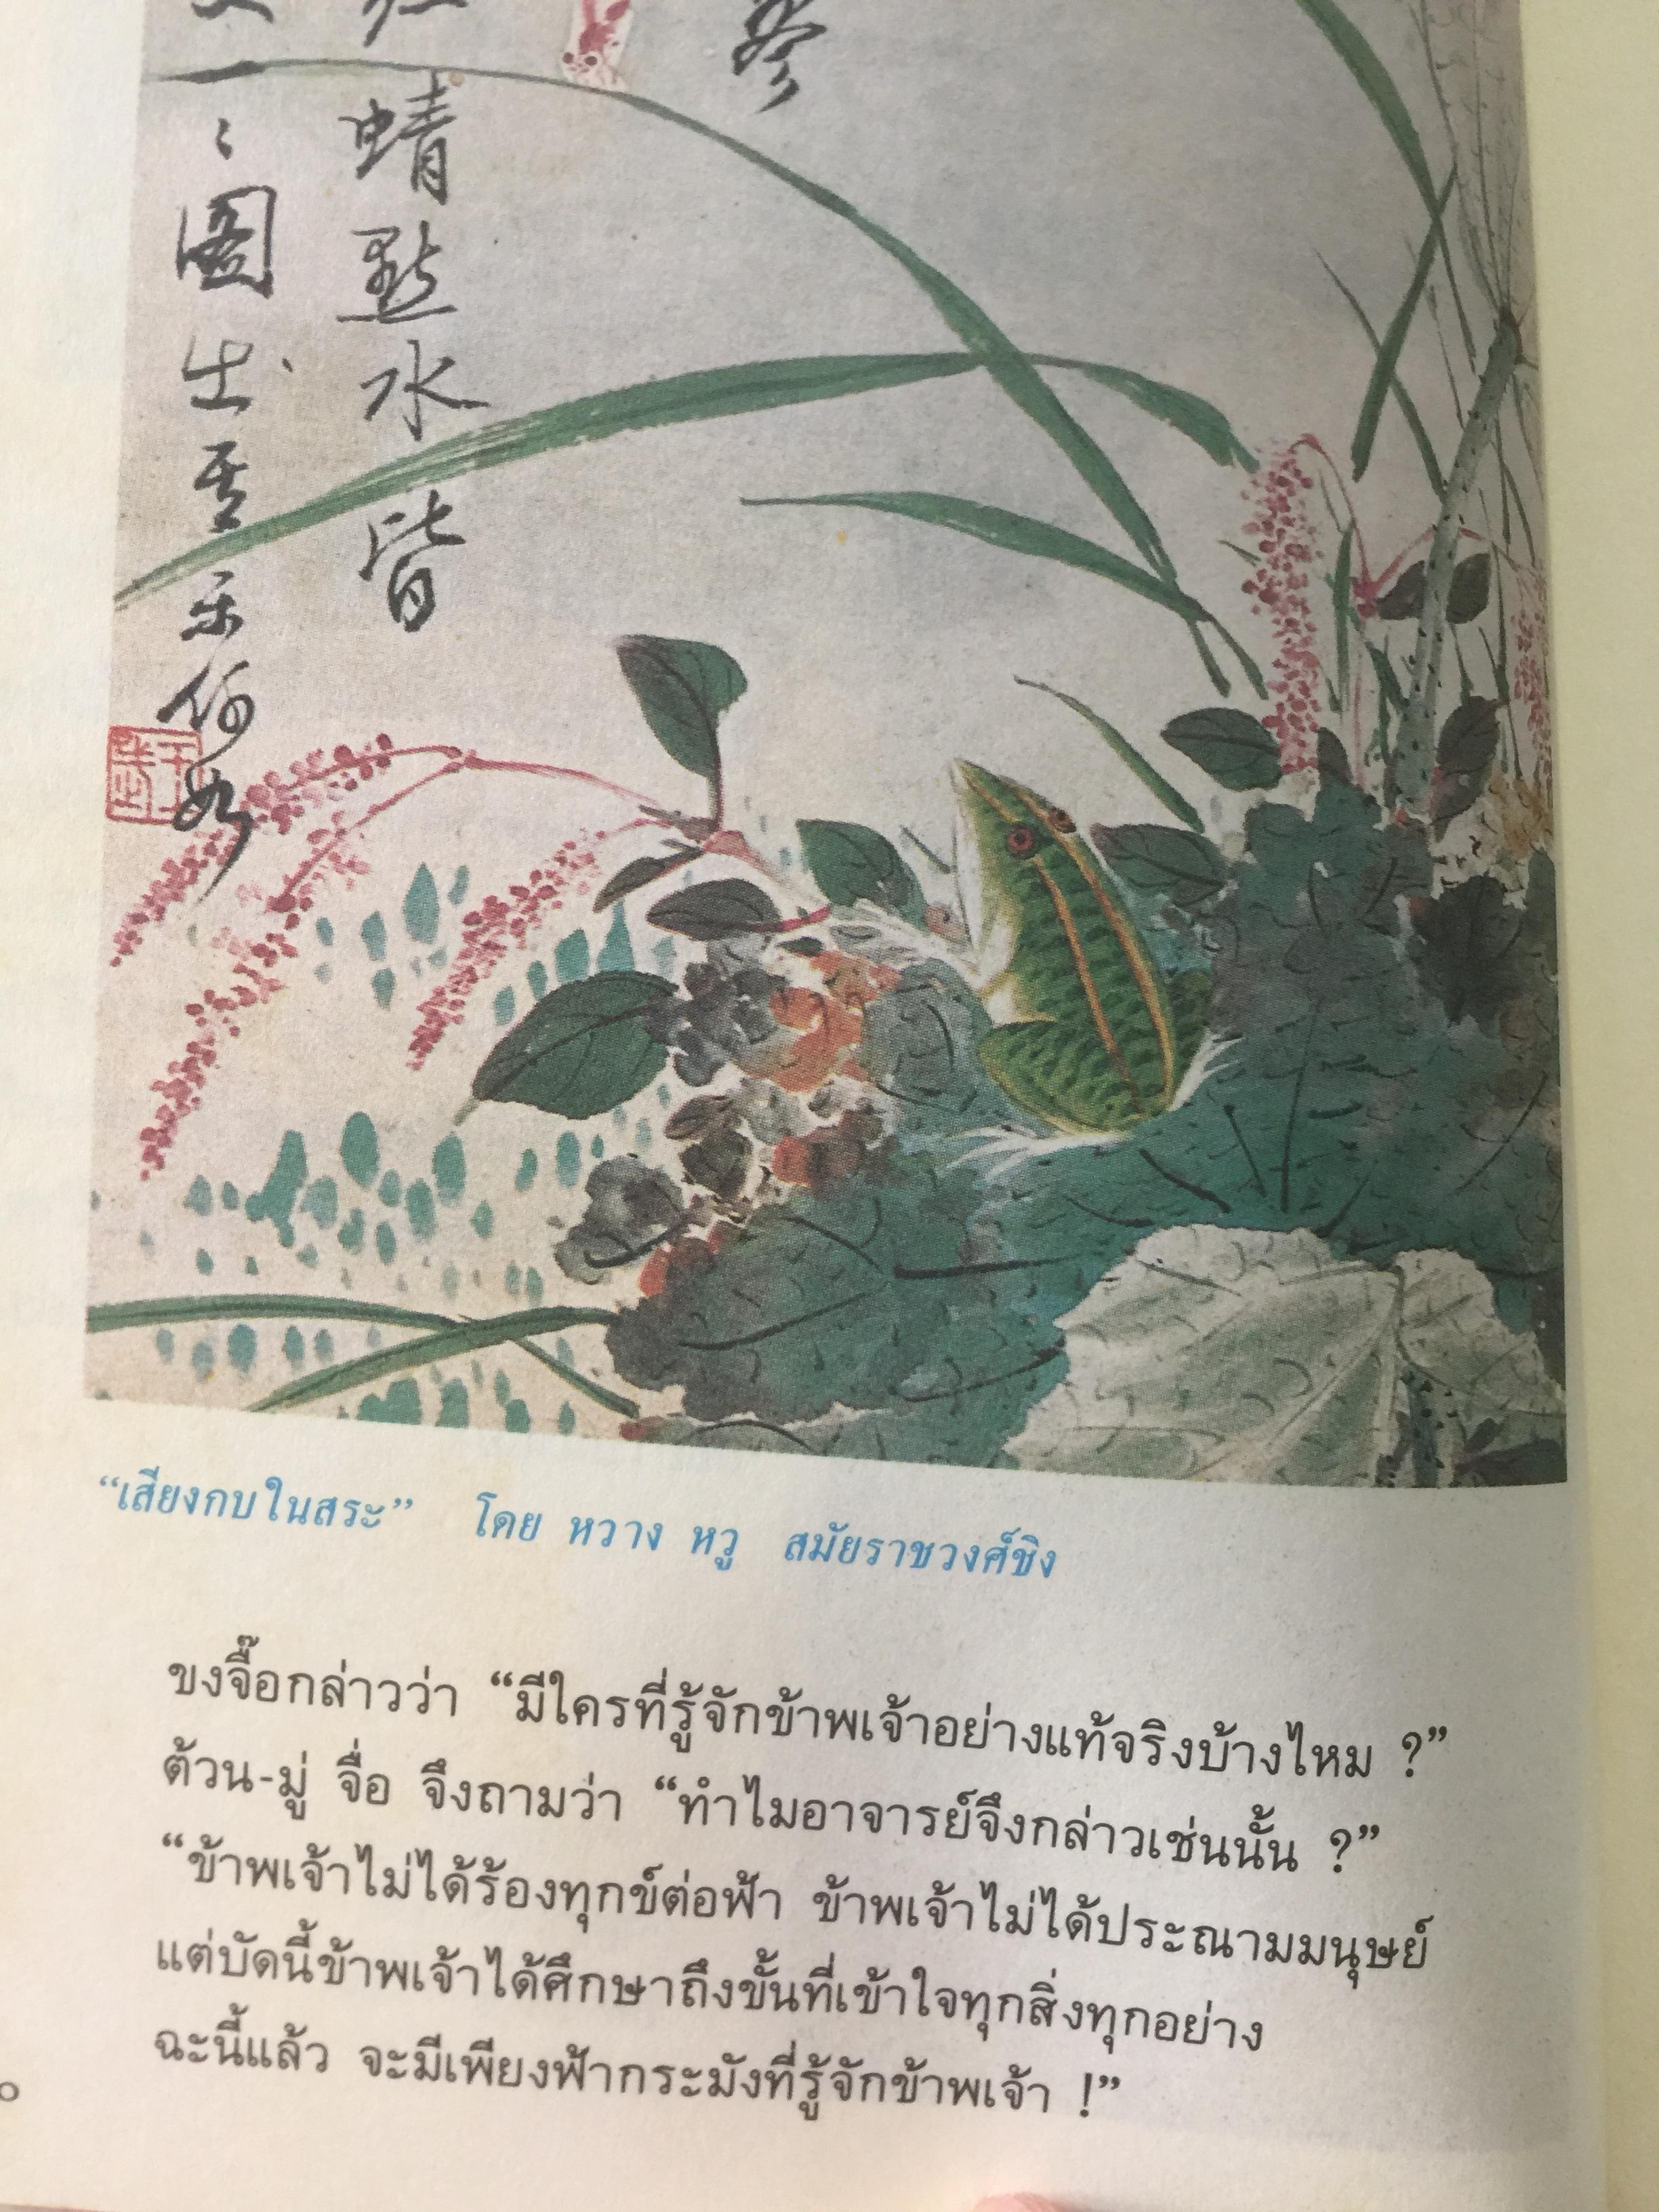 蓼
蜻點水皆
一〻圖出
“เสียงกบในสระ” โดย หวาง หวู สมัยราชวงศ์ชิง
ขงจื๊อกล่าวว่า “มีใครที่รู้จักข้าพเจ้าอย่างแท้จริงบ้างไหม ?”
ต้วน-มู่ จื่อ จึงถามว่า “ทำไมอาจารย์จึงกล่าวเช่นนั้น ?”
“ข้าพเจ้าไม่ได้ร้องทุกข์ต่อฟ้า ข้าพเจ้าไม่ได้ประณามมนุษย์
แต่บัดนี้ข้าพเจ้าได้ศึกษาถึงขั้นที่เข้าใจทุกสิ่งทุกอย่าง
ฉะนี้แล้ว จะมีเพียงฟ้ากระมังที่รู้จักข้าพเจ้า !”